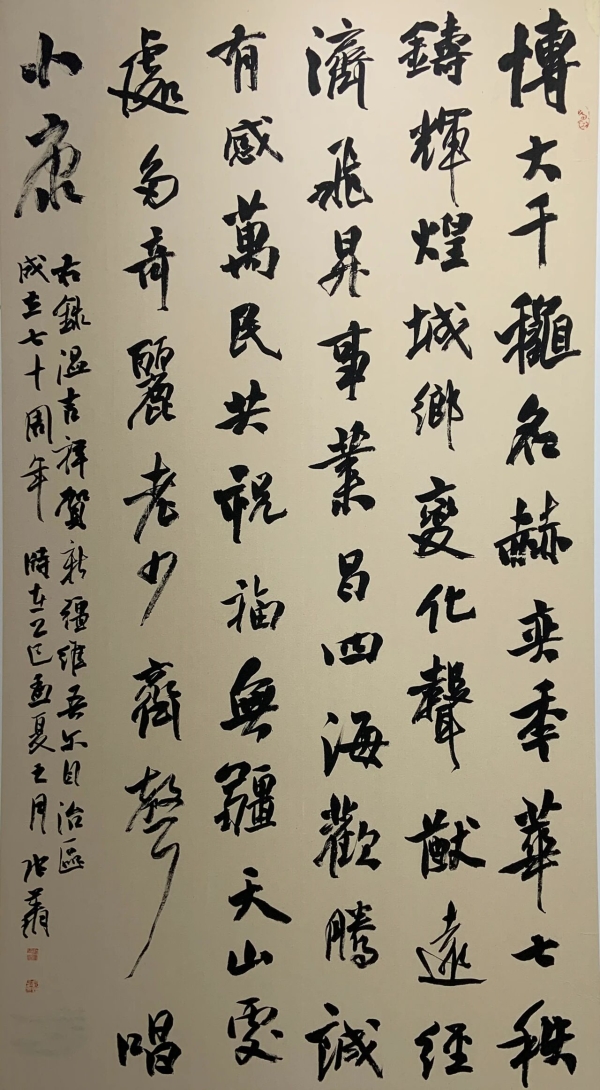 博大千龝名赫奕秊華七秩
鑄輝煌城鄉變化聲猷遠經
濟飛昇事業昌四海歡騰誠
有感萬民共祝福無疆天山處
處多奇麗老少齊聲唱
小康
右錄溫吉祥賀新疆維吾尔自治區
成立七十周年 時在乙巳孟夏之月